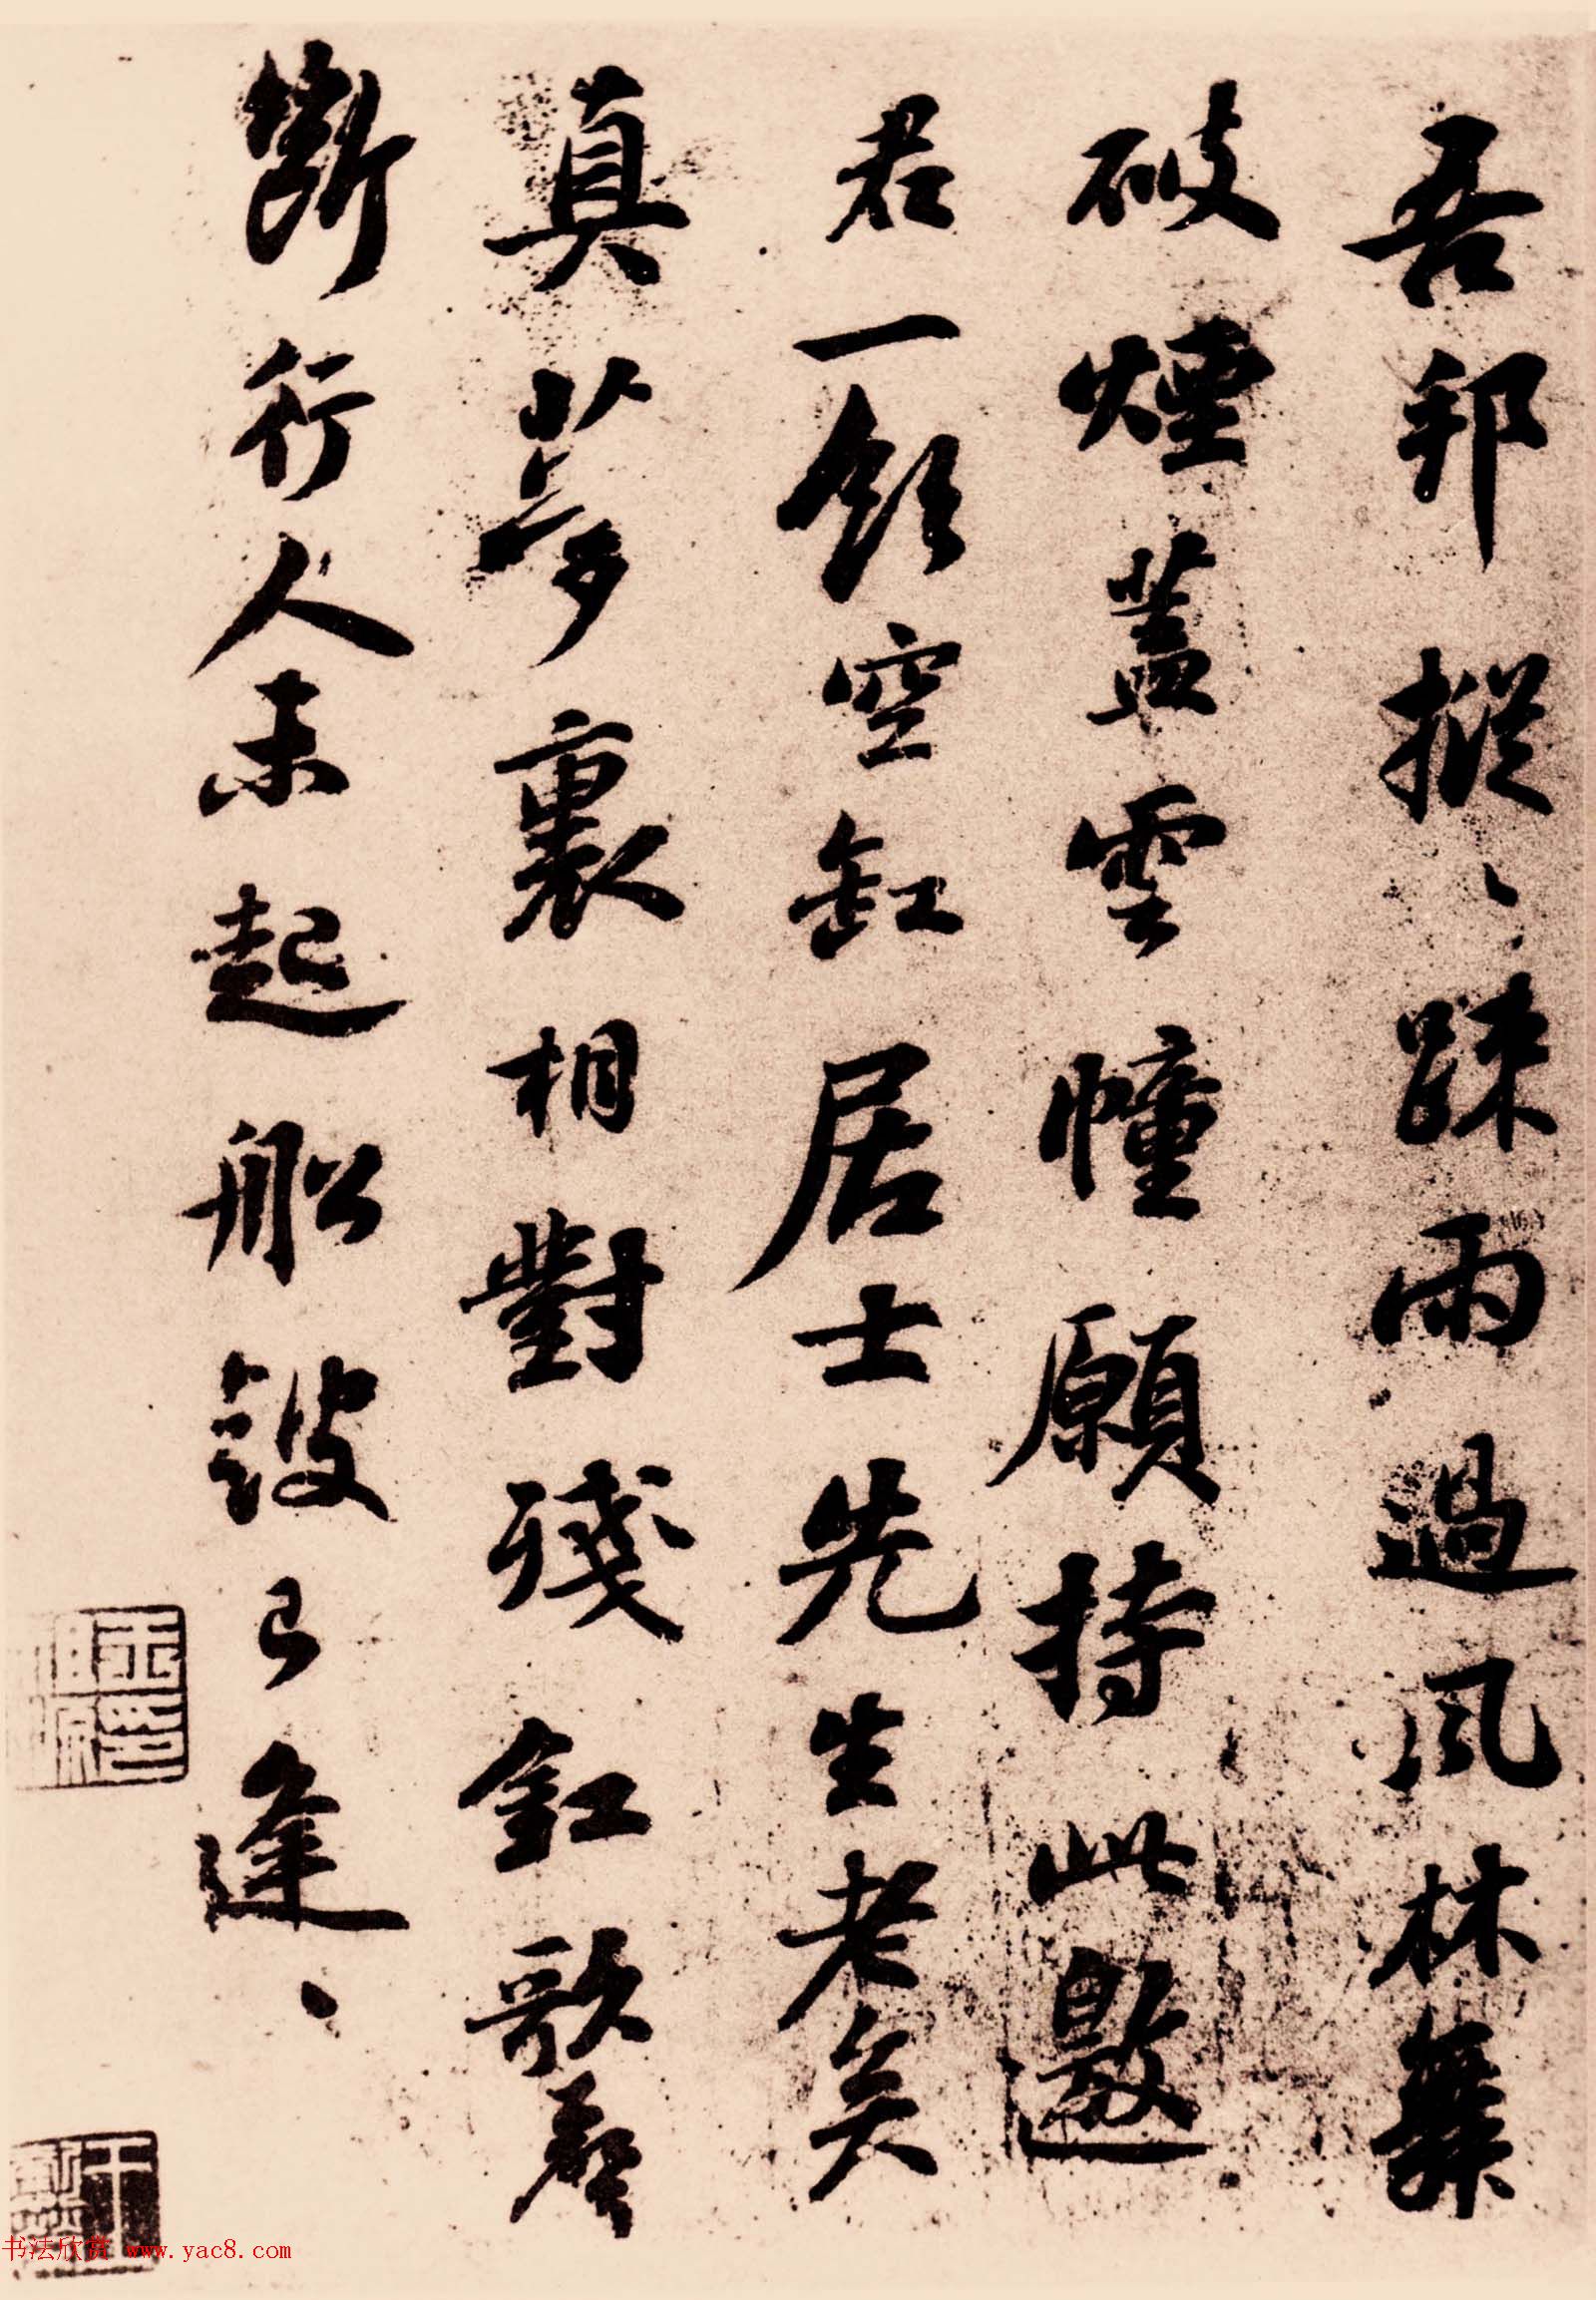 吾邦摐〻踈雨過風林舞
破煙蓋雲幢願持此邀
君一飲空缸居士先生老矣
真夢裏相對殘釭歌聲
斷行人未起船鼓已逢〻
书法欣赏 www.yac8.com